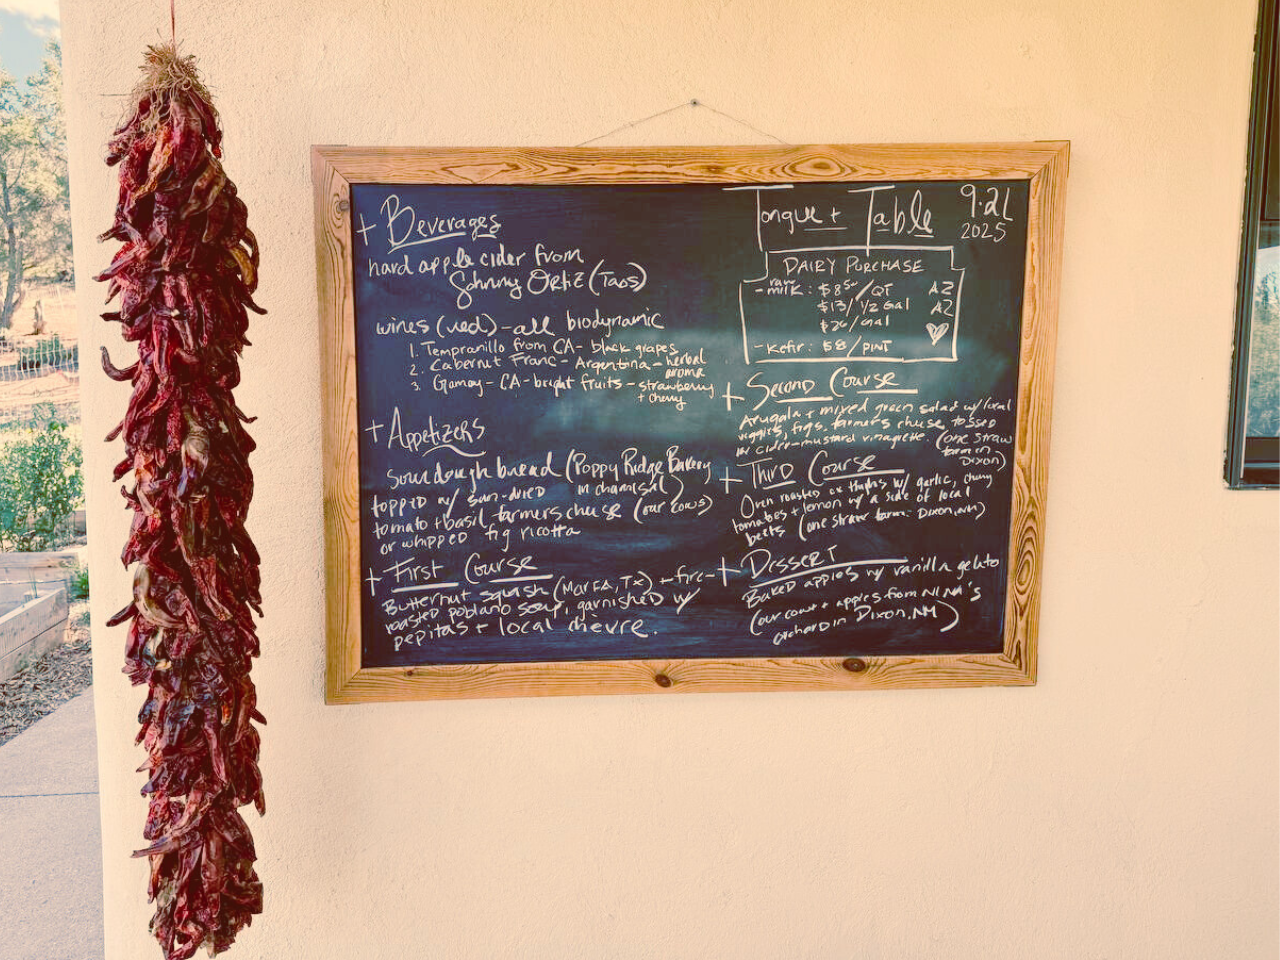 + Beverages
hard apple cider from
Johnny Ortiz (Taos)
wines (red) - all biodynamic
1. Tempranillo from CA - black grapes
2. Cabernut Franc - Argentina - herbal
aroma
3. Gamay - CA - bright fruits - strawberry
+ cherry
+ Appetizers
sourdough bread (Poppy Ridge Bakery
in chamisal)
topped w/ sun-dried
tomato + basil, farmers cheese (our cows)
or whipped fig ricotta
+ First Course
Butternut squash (Marfa, TX) + fire-
roasted poblano soup, garnished w/
pepitas + local chevre.
Tongue + Table
9.21
2025
DAIRY PURCHASE
- raw milk: $8.50/QT A2
$13/ 1/2 Gal A2
$26/Gal
- Kefir: $8/PINT
+ Second Course
Arugala + mixed green salad w/ local
veggies, figs, farmers cheese, tossed
in cider-mustard vinagrette. (one straw
farm in
Dixon)
+ Third Course
Oven roasted thighs w/ garlic, cherry
tomatoes + lemon w/ a side of local
beets (one straw farm: Dixon, NM)
+ Dessert
Baked apples w/ vanilla gelato
(our cows + apples from NINA's
orchard in Dixon, NM)